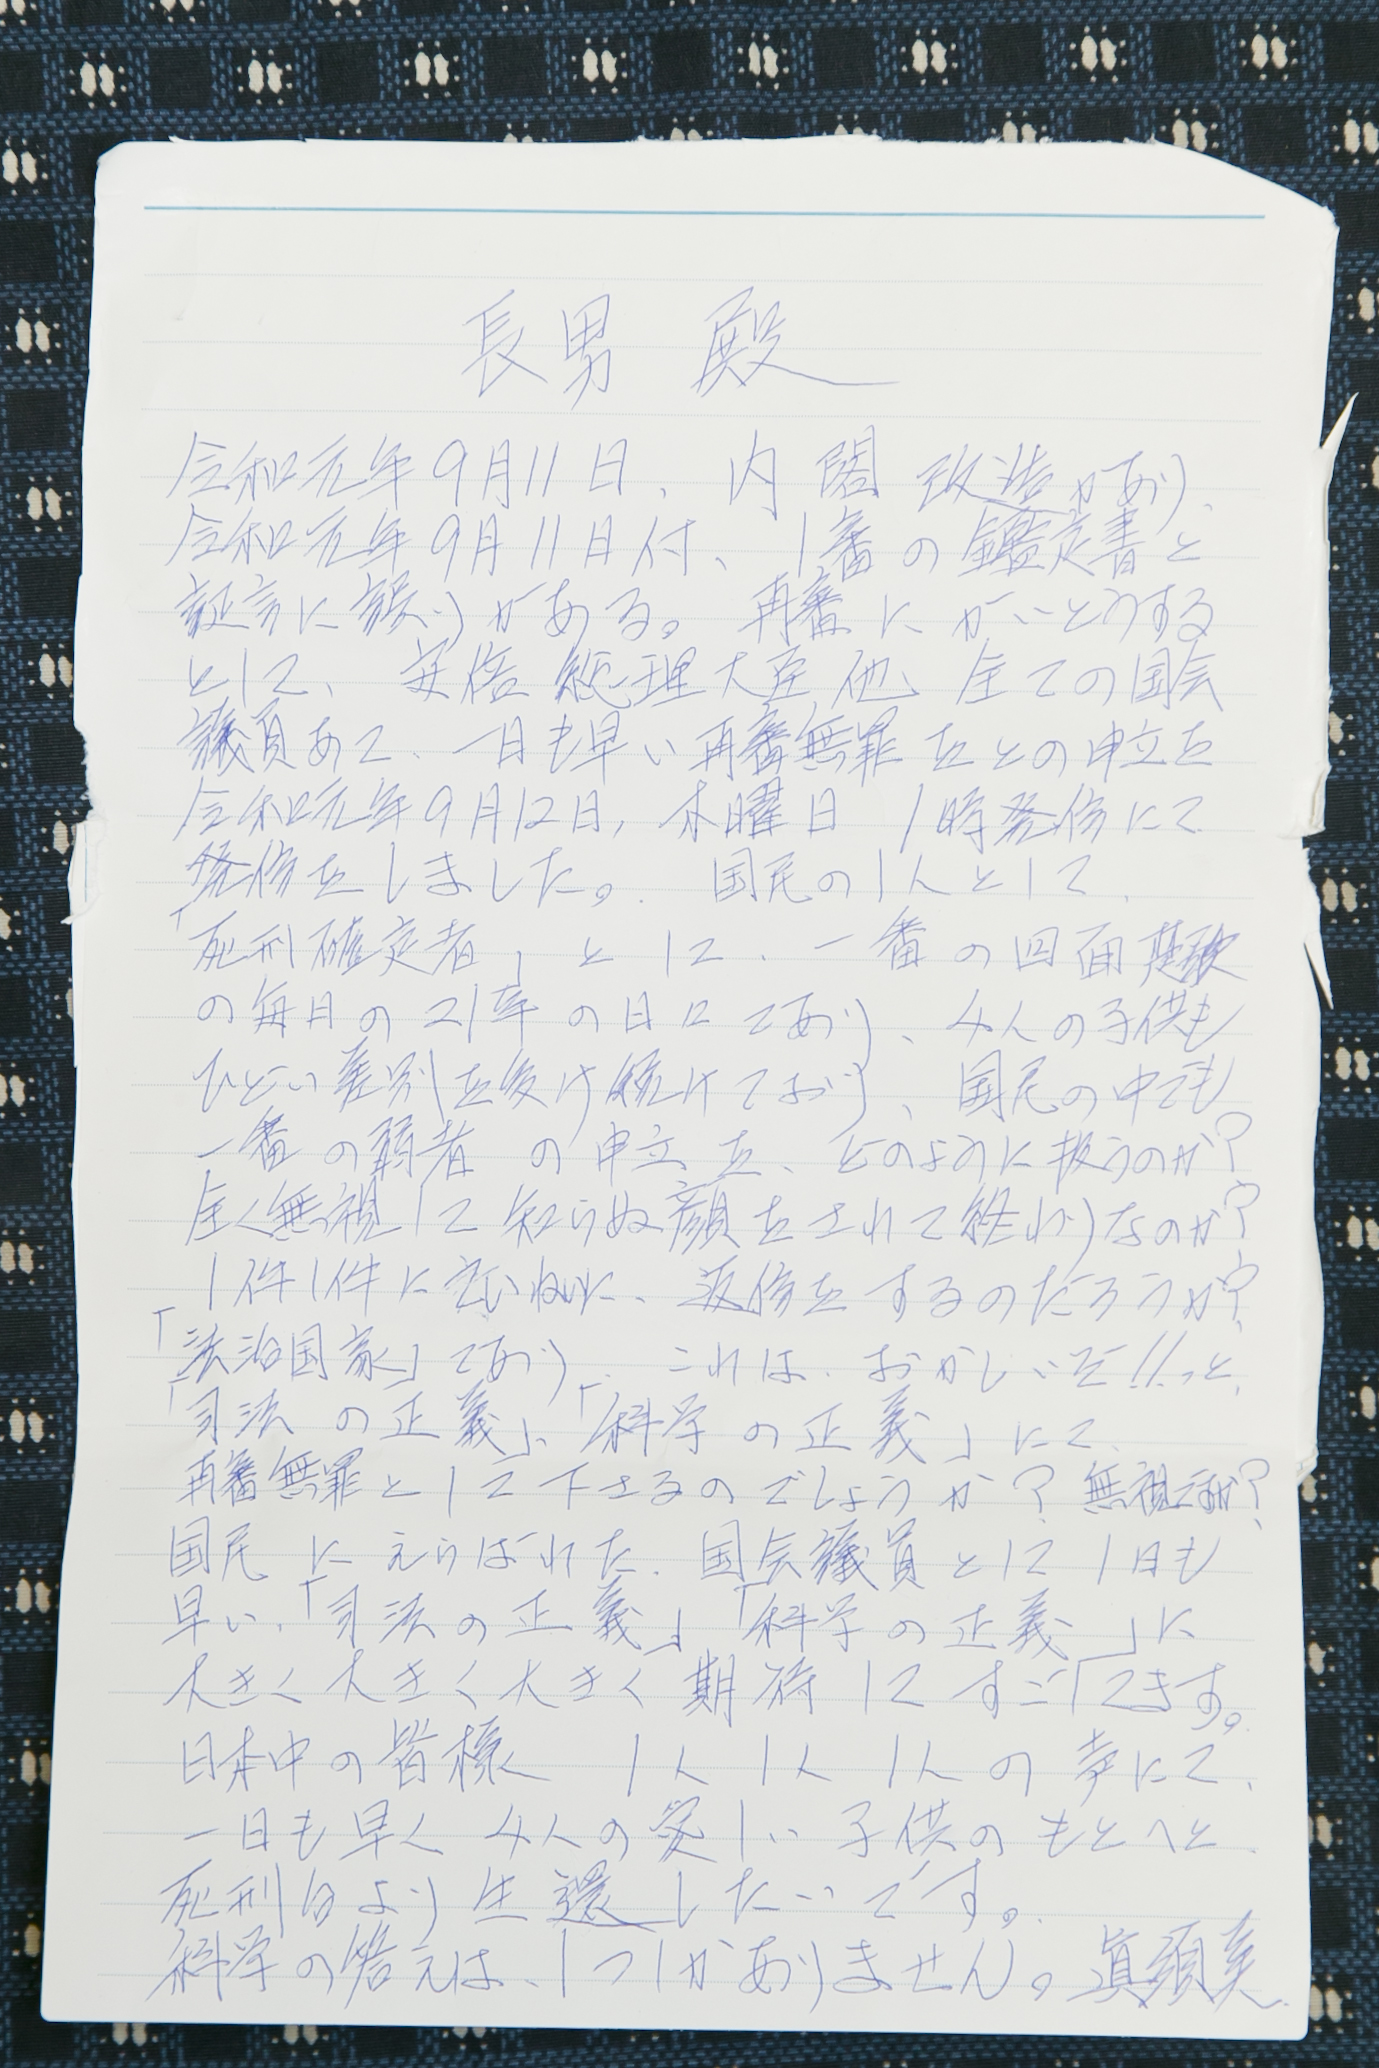 長男 殿
令和元年9月11日、内閣改造があり、
令和元年9月11日付、1審の鑑定書と
証言に誤りがある。再審にがいとうする
として、安倍総理大臣他、全ての国会
議員あて、一日も早い再審無罪をとの申立を
令和元年9月12日,木曜日 1時発信にて
発信をしました。国民の1人として、
「死刑確定者」として、一番の四面楚歌
の毎日の21年の日々であり、4人の子供も
ひどい差別を受け続けており、国民の中でも
一番の弱者の申立を、どのように扱うのか?
全く無視して知らぬ顔をされて終わりなのか?
1件1件にていねいに、返信をするのだろうか?
「法治国家」であり、これは、おかしいぞ!!っと、
「司法の正義」、「科学の正義」にて、
再審無罪として下さるのでしょうか?無視ですか?
国民にえらばれた、国会議員として1日も
早い、「司法の正義」「科学の正義」に
大きく大きく大きく期待してすごしてきます。
日本中の皆様 1人1人1人の声にて、
一日も早く4人の愛しい子供のもとへと
死刑台より生還したいです。
科学の答えは、1つしかありません。眞須美